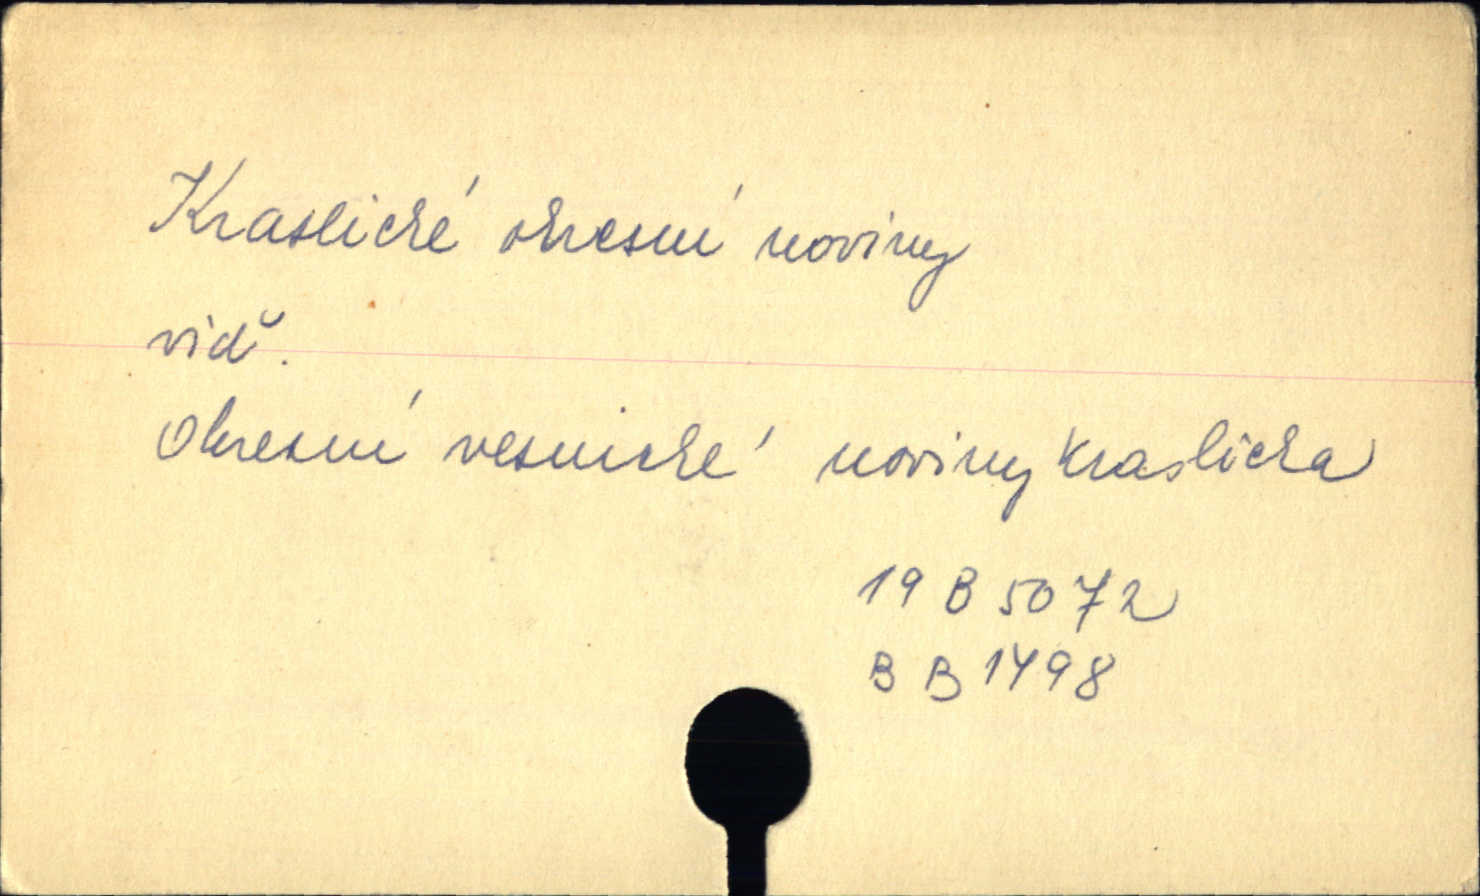 Kraslické okresní noviny
viď.
Okresní vesnické noviny Kraslicka
19 B 5072
B B 1498